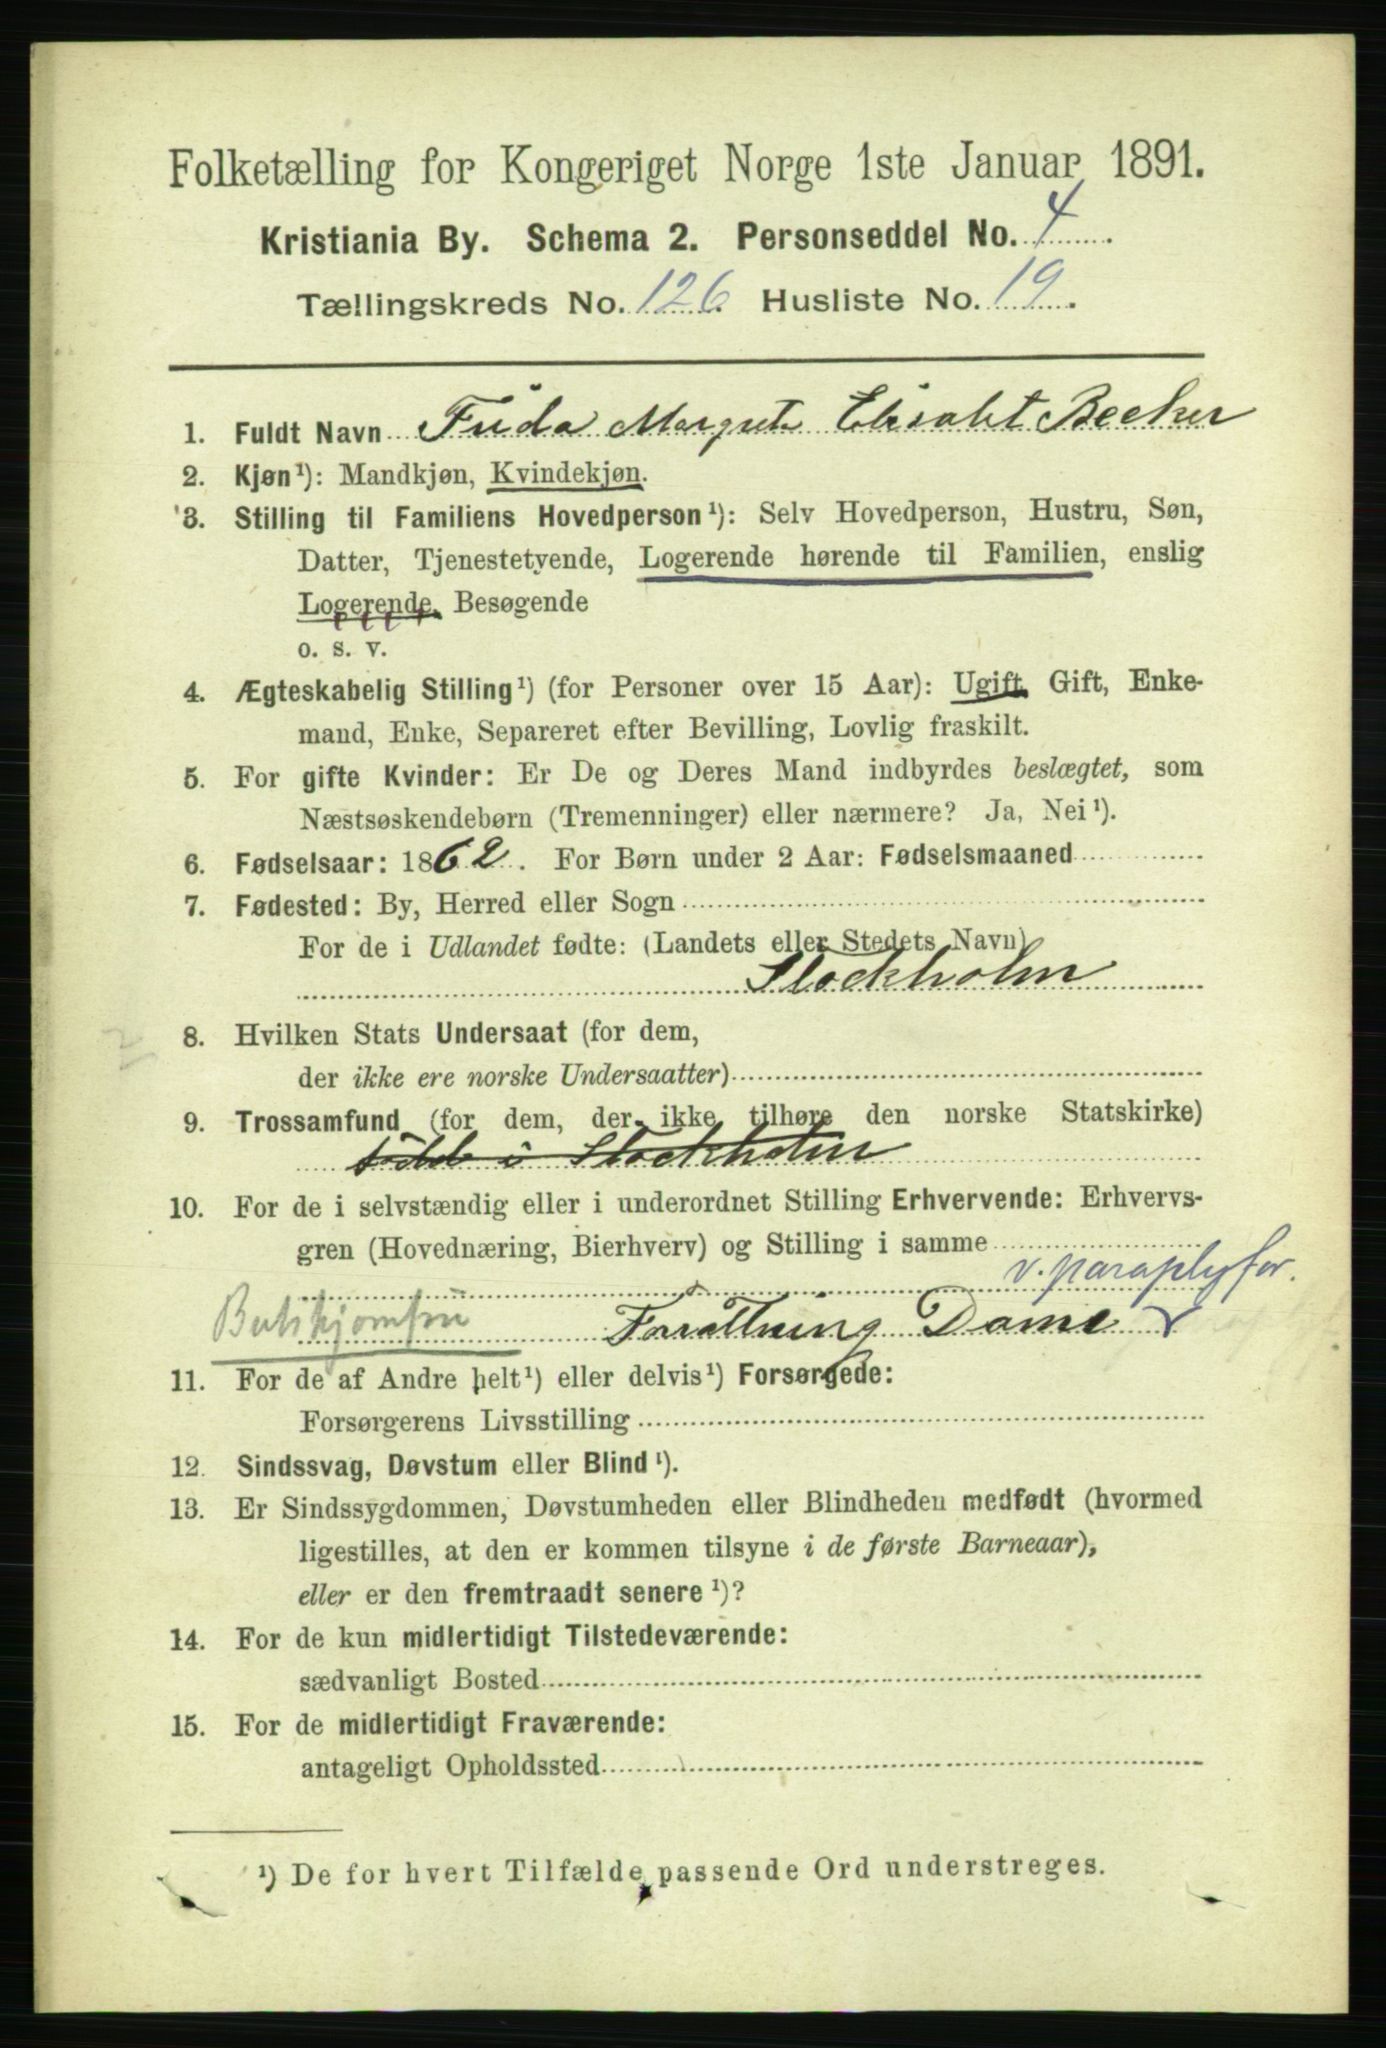 Folketælling for Kongeriget Norge 1ste Januar 1891.
Kristiania By. Schema 2. Personseddel No. 4
Tællingskreds No. 126. Husliste No. 19.
1. Fuldt Navn Frida Margreta Elisabt Becker
2. Kjøn¹): Mandkjøn, Kvindekjøn.
3. Stilling til Familiens Hovedperson¹): Selv Hovedperson, Hustru, Søn,
Datter, Tjenestetyende, Logerende hørende til Familien, enslig
Logerende, Besøgende
o. s. v.
4. Ægteskabelig Stilling¹) (for Personer over 15 Aar): Ugift, Gift, Enke-
mand, Enke, Separeret efter Bevilling, Lovlig fraskilt.
5. For gifte Kvinder: Er De og Deres Mand indbyrdes beslægtet, som
Næstsøskendebørn (Tremenninger) eller nærmere? Ja, Nei¹).
6. Fødselsaar: 1862. For Børn under 2 Aar: Fødselsmaaned
7. Fødested: By, Herred eller Sogn
For de i Udlandet fødte: (Landets eller Stedets Navn)
Stockholm
8. Hvilken Stats Undersaat (for dem,
2
der ikke ere norske Undersaatter)
9. Trossamfund (for dem, der ikke tilhøre den norske Statskirke)
född i Stockholm
10. For de i selvstændig eller i underordnet Stilling Erhvervende: Erhvervs-
gren (Hovednæring, Bierhverv) og Stilling i samme
v. paraplyfor.
Butikjomfru Forrättning Dame
11. For de af Andre helt¹) eller delvis¹) Forsørgede:
Forsørgerens Livsstilling
12. Sindssvag, Døvstum eller Blind¹).
13. Er Sindssygdommen, Døvstumheden eller Blindheden medfødt (hvormed
ligestilles, at den er kommen tilsyne i de første Barneaar),
eller er den fremtraadt senere¹)?
14. For de kun midlertidigt Tilstedeværende:
sædvanligt Bosted
15. For de midlertidigt Fraværende:
antageligt Opholdssted
¹) De for hvert Tilfælde passende Ord understreges.